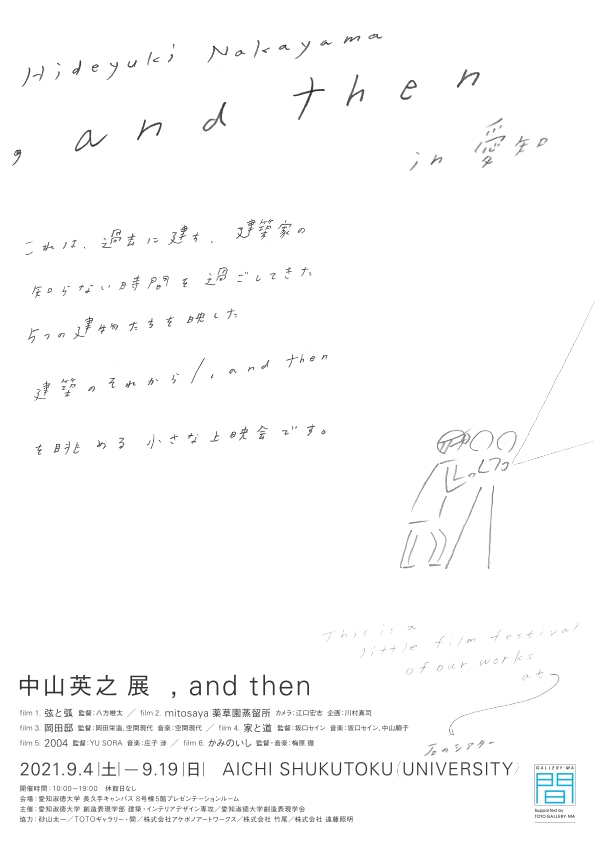 Hideyuki Nakayama
, and then
in 愛知
これは、過去に建ち、建築家の
知らない時間を過ごしてきた
5つの建物たちを映した
建築のそれから/, and then
を眺める 小さな上映会です。
This is a
little film festival
of our works
at
石のシアター
中山英之 展 , and then
film 1. 弦と弧 監督:八方椎太 / film 2. mitosaya 薬草園蒸留所 カメラ:江口宏志 企画:川村真司
film 3. 岡田邸 監督:岡田栄造、空間現代 音楽:空間現代 / film 4. 家と道 監督:坂口セイン 音楽:坂口セイン、中山順子
film 5. 2004 監督:YU SORA 音楽:庄子 渉 / film 6. かみのいし 監督・音楽:梅原 徹
2021.9.4|土|—9.19|日| AICHI SHUKUTOKU(UNIVERSITY)
開催時間:10:00−19:00 休館日なし
会場:愛知淑徳大学 長久手キャンパス 8号棟5階プレゼンテーションルーム
主催:愛知淑徳大学 創造表現学部 建築・インテリアデザイン専攻/愛知淑徳大学創造表現学会
協力:砂山太一/TOTOギャラリー・間/株式会社アケボノアートワークス/株式会社 竹尾/株式会社 遠藤照明
GALLERY・MA
間
Supported by
TOTO GALLERY・MA